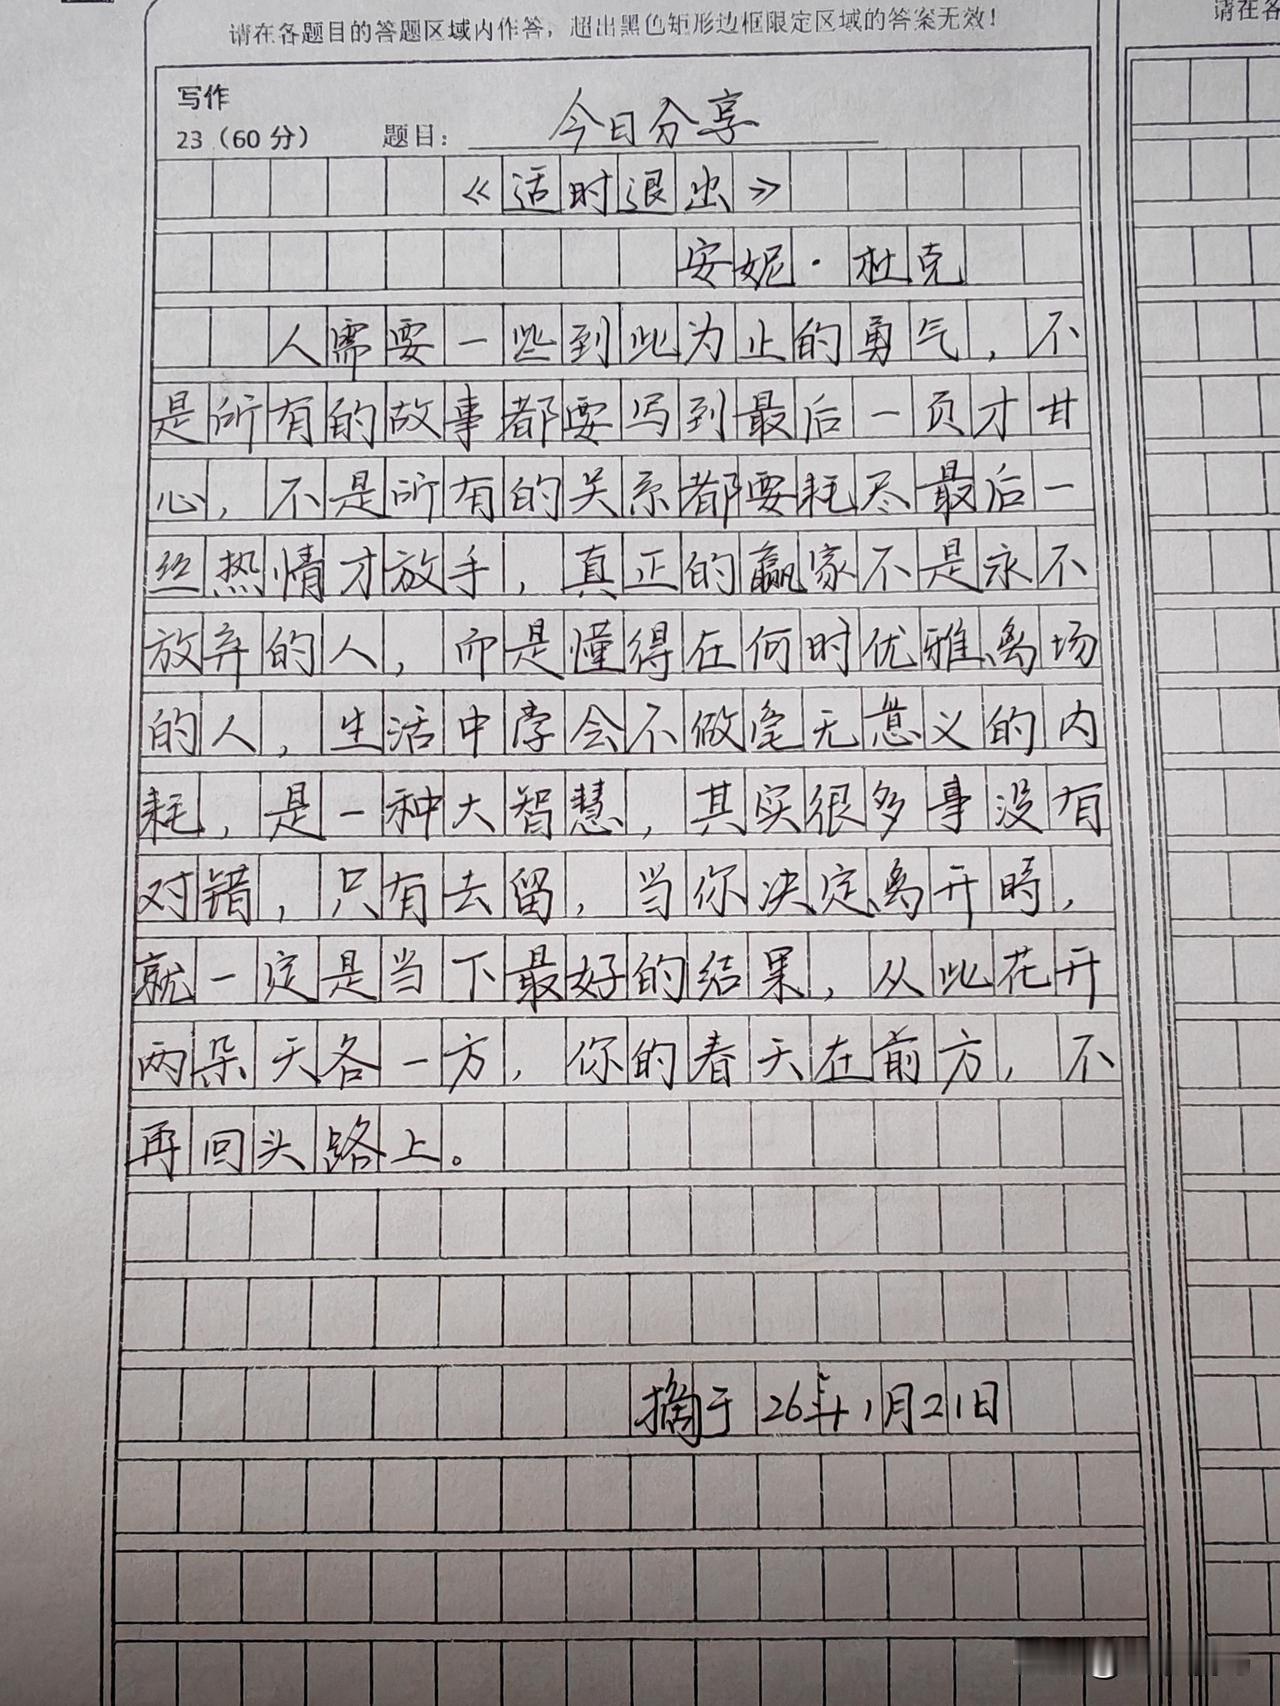 请在各题目的答题区域内作答，超出黑色矩形边框限定区域的答案无效！
请在各
写作
23（60分） 题目：今日分享
《适时退出》
安妮·杜克
人需要一些到此为止的勇气，不
是所有的故事都要写到最后一页才甘
心，不是所有的关系都要耗尽最后一
丝热情才放手，真正的赢家不是永不
放弃的人，而是懂得在何时优雅离场
的人，生活中学会不做毫无意义的内
耗，是一种大智慧，其实很多事没有
对错，只有去留，当你决定离开時，
就一定是当下最好的结果，从此花开
两朵天各一方，你的春天在前方，不
再回头路上。
摘于26年1月21日